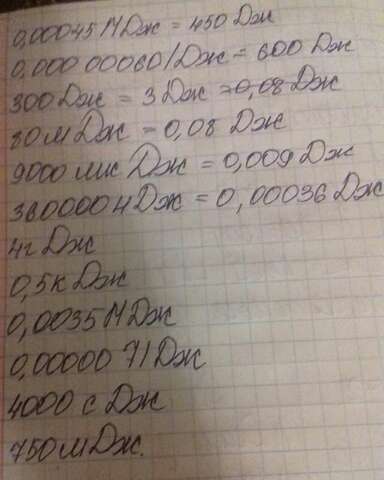 0,00045 МДж = 450 Дж
0,000 00060 ГДж = 600 Дж
300 Дж = 3 Дж = 0,08 Дж
80 мДж = 0,08 Дж
9000 мкДж = 0,009 Дж
360000 нДж = 0,00036 Дж
4гДж
0,5кДж
0,0035 МДж
0,0000071 Дж
4000 сДж
750мДж.